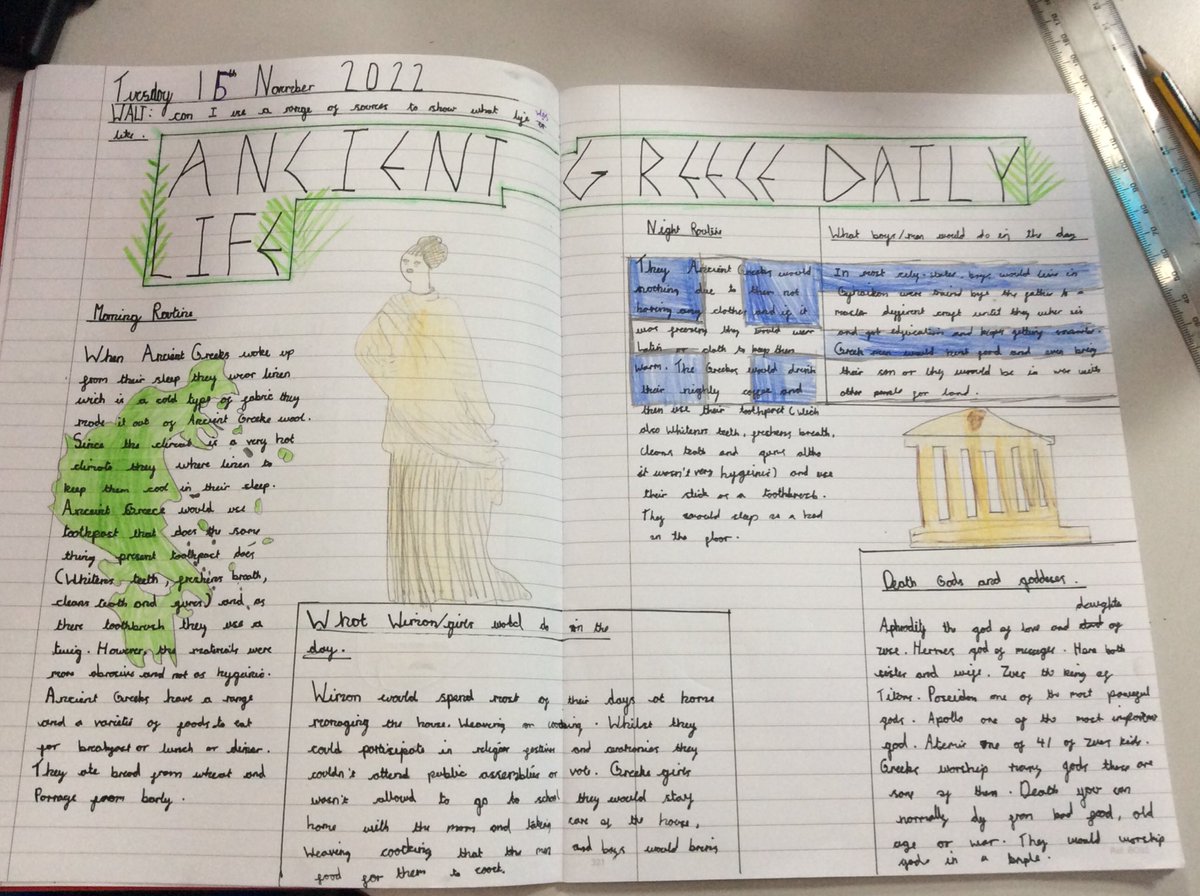 Tuesday 15th November 2022
WALT: can I use a range of sources to show what life was
like.
ANCIENT GREECE DAILY
LIFE
Morning Routine
When Ancient Greeks woke up
from their sleep they wear linen
wich is a cold type of fabric they
made it out of Ancient Greeke wool.
Since the climat is a very hot
climate they where linen to
keep them cool in their sleep.
Ancient Greece would use
toothpast that does the same
thing present toothpast does
(Whitens teeth, freshens breath,
cleans teeth and gums) and as
there toothbrush they use a
twig. However, the materials were
more abrasive and not as hygienic.
Ancient Greeks have a range
and a varieties of foods to eat
for breakfast or lunch or diner.
They ate bread from wheat and
Porrage from barly.
What Wimon/girls would do in the
day.
Wimon would spend most of their days at home
managing the house. Weaving or cooking. Whilst they
could participate in religion festives and they
couldn't attend public assemblies or vote. Greeke girls
wasn't allowed to go to school they would stay
home with the mom and taking care of the house,
Weaving coocking that the men and boys would bring
food for them to coock.
Night Routine
They Ancient Greeks would
nothing due to them not
having any clothes and if it
was freezing they would wear
or cloth to keep them
warm. The Greekes would drink
their nightly and
then use their toothpast (wich
also Whitens teeth, freshens breath,
cleans teeth and gums altho
it wasn't very hygeinic) and use
their stick as a toothbrush.
They would sleep as a bed
on the floor.
What boys/men would do in the day
In most city-states, boys would live in
were trained bye the father to a
master different craft until they
and get education and
Greek men would hunt food and even bring
their son or they would be in war with
other for land.
Death Gods and goddeses.
daughte
the god of love and of
zuse. Hermes god of messages. Hera both
sister and wife. Zues the king of
Titans. Poseidon one of the most powerful
gods. Apollo one of the most importan
god. Atemis one of 41 of Zues kids.
Greeks worship many gods these are
some of them. Death you can
normally dy from bad food, old
age or war. They would worship
gods in a